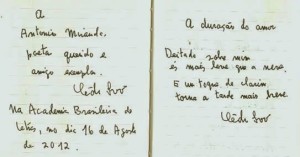 A
Antonio Miranda,
poeta querido e
amigo exemplar.
Lêdo Ivo
Na Academia Brasileira de
Letras, no dia 16 de Agosto
de 2012.
A duração do amor
Deitada sobre mim
és mais leve que a neve.
E um toque de clarim
torna a tarde mais breve.
Lêdo Ivo